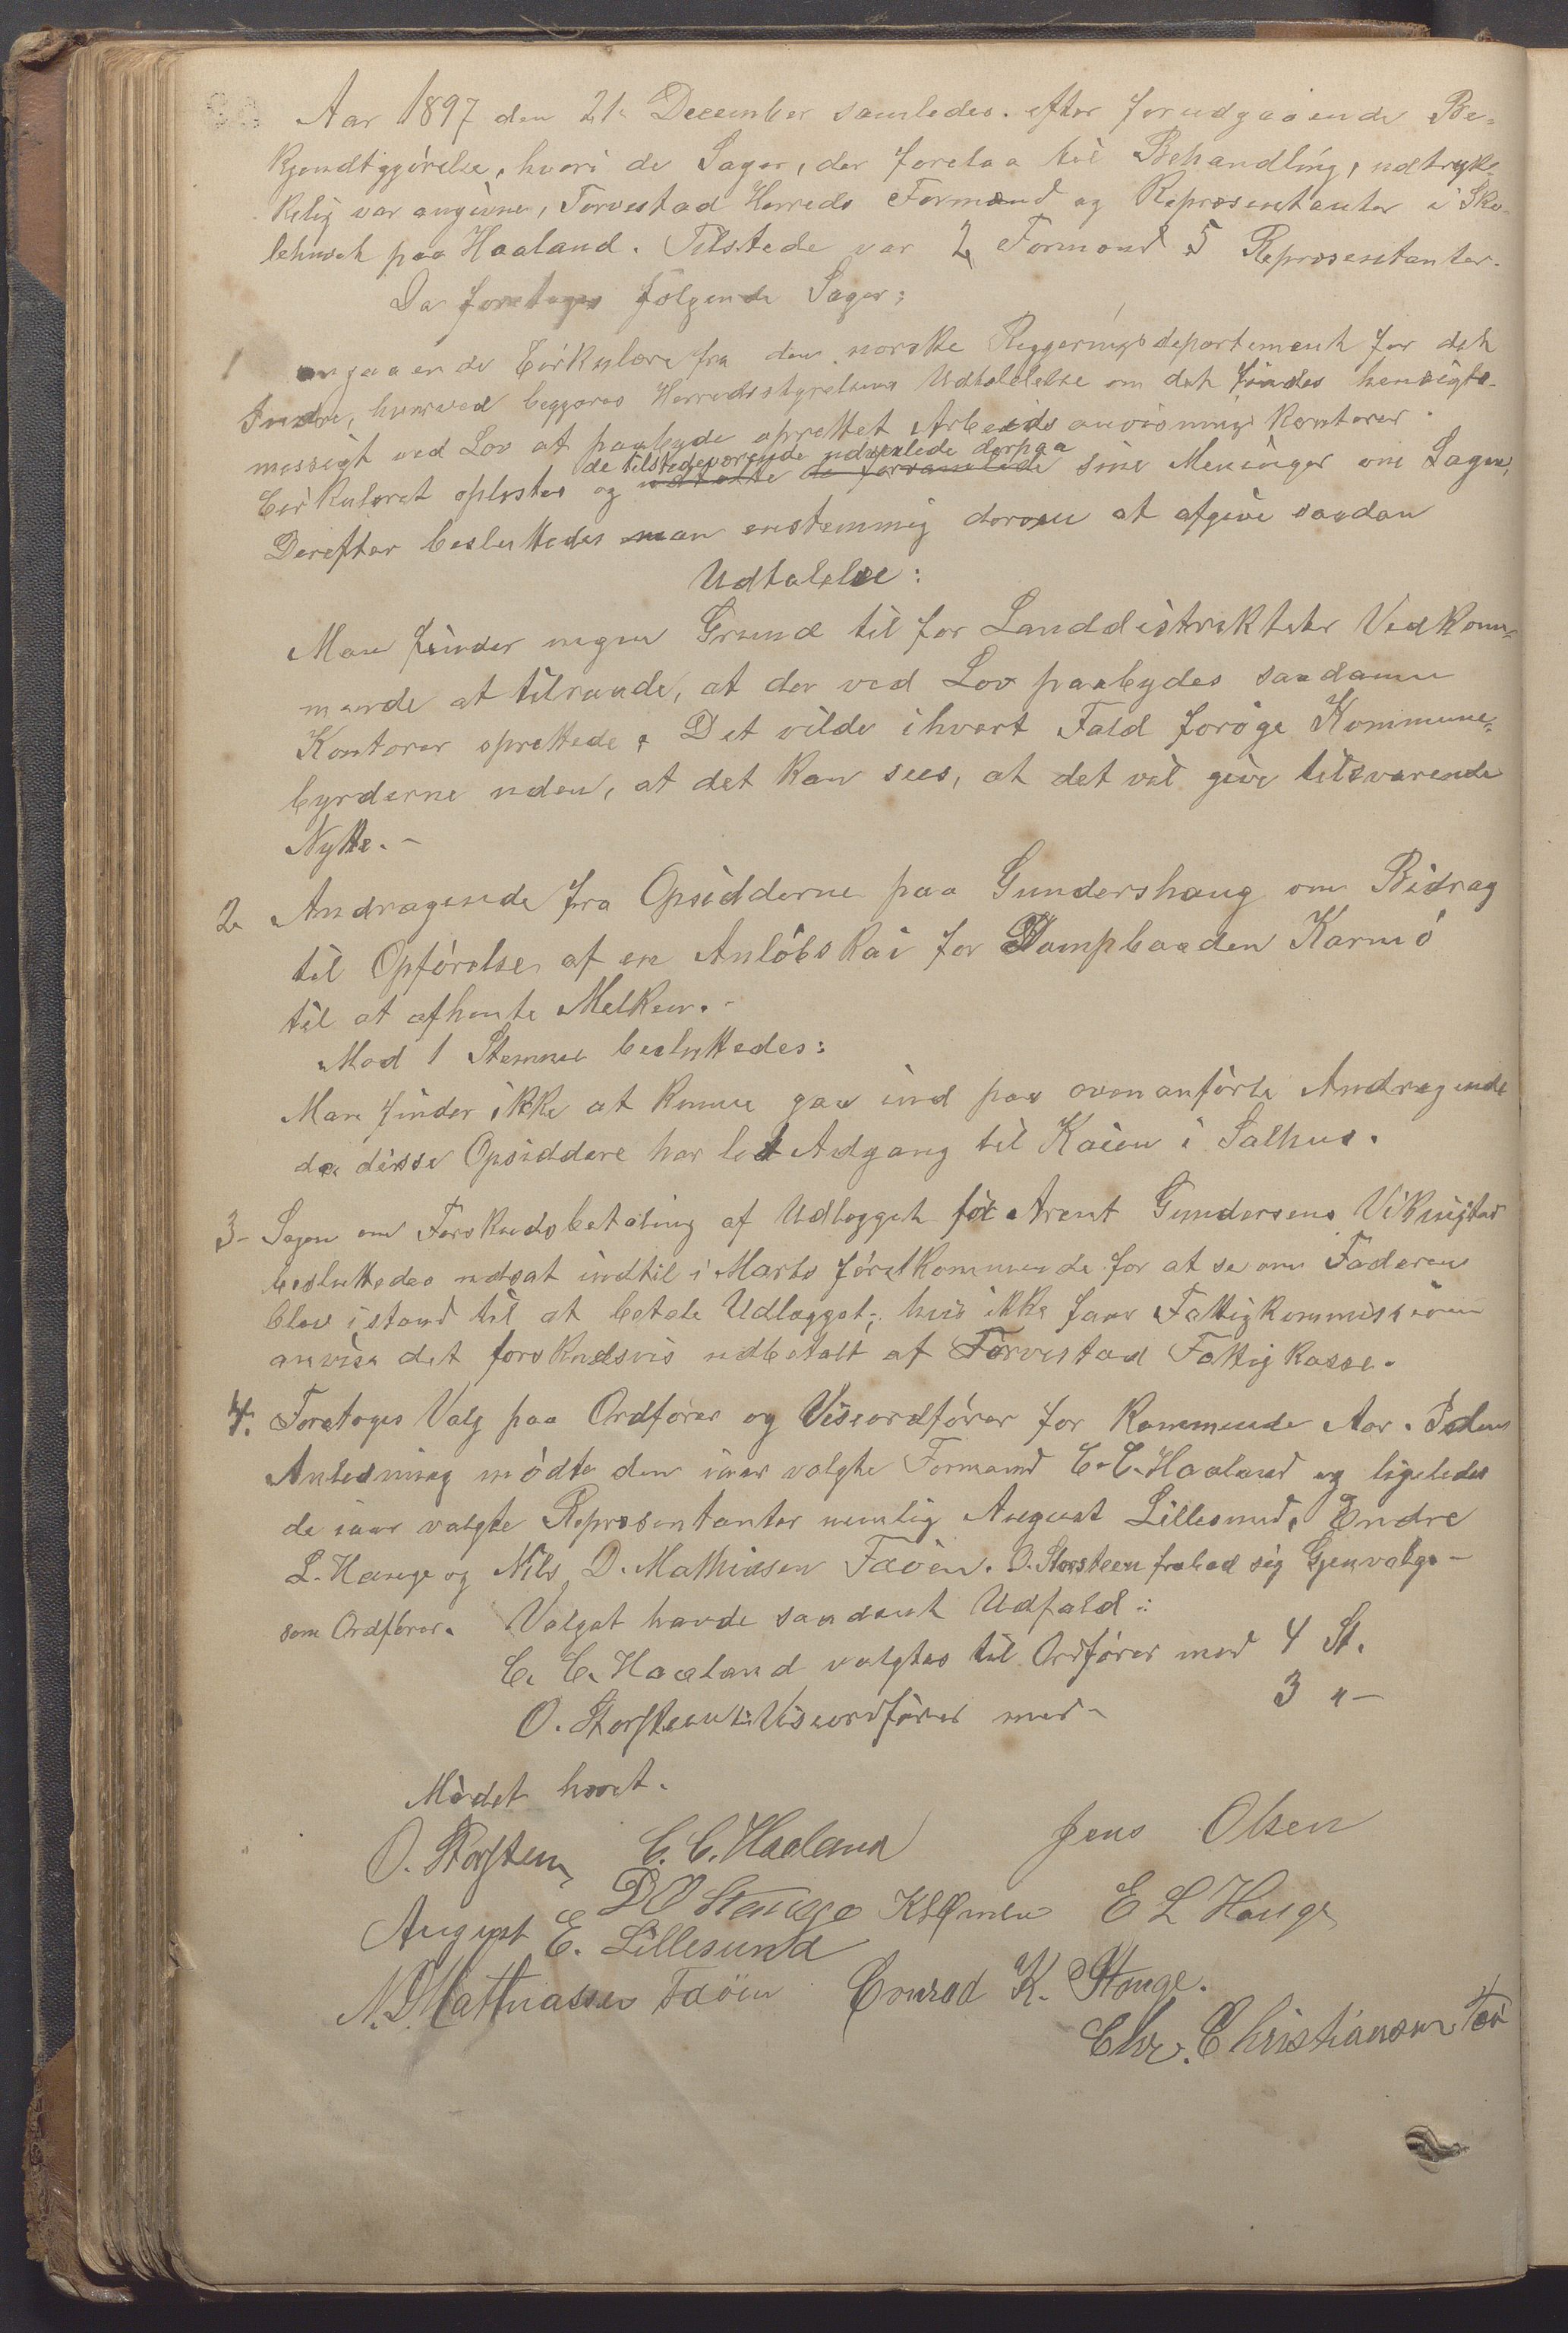 Aar 1897 den 21. December samledes efter forudgaaende Be-
kjendtggjörelse, hvori de Sager, der forelaa til Behandling, udtryk-
kelig var angivne, Torvestad Herreds Formænd og Repræsentanter i Sko-
lehuset paa Haaland. Tilstede var 2 Formænd 5 Repræsentanter.
Da foretoges fölgende Sager:
1 angaaende Cirkulære fra den norske Reggeringsdepartement for det
Indre, hvorved beggæres Herredsstyrelsens Udtalelelse om det findes hensigts-
messigt ved Lov at paabyde oprettet Arbeidsanvisnings Kontorer.
de tilstedeværende udvexlede derpaa
Cirkulæret oplæstes og udtalte de forsamlede sine Meninger om Sagen,
Derefter besluttedes man enstemmig at afgive saadan
Udtalelse:
Man finder ingen Grund til for Landdistrikteter Vedkom-
mende at tilraade, at der ved Lov paabydes saadanne
Kontorer oprettede. Det vilde ihvert Fald foröge Kommune-
byrderne uden, at det kan sees, at det vil give tilsvarende
Nytte. -
2 Andragende fra Opsidderne paa Gundershaug om Bidrag
til Opförelse af en Anlöbskai for Dampbaaden Karmö
til at afhente Melken. -
Mod 1 Stemme besluttedes:
Man finder ikke at kunne gaa ind paa ovenanförte Andragende
da disse Opsiddere har let Adgang til Kaien i Salhus.
3- Sagen om Forskudsbetaling af Udlægget for Arent Gundersens Vikingstad
besluttedes udsat indtil i Marts förstkommende for at se om Faderen
blev istand til at betale Udlægget; hvis ikke faar Fattigkommissionen
anvise det forskudsvis udbetalt af Torvestad Fattigkasse.
4. Foretoges Valg paa Ordförer og Viseordförer for kommende Aar. I den
Anledning mödte den iaar valgte Formand C. C. Haaland og ligeledes
de iaar valgte Repræsentanter nemlig August Lillesund, Endre
L. Hauge og Nils D. Mathiasen Faöen. O. Storsteen frabad sig Gjenvalg -
som Ordförer. Valget havde saadant Udfald:
C. C. Haaland valgtes til Ordförer med 4 St.
O. Storsteen til Viseordförer med - 3 " -
Mödet hævet.
O. Storsteen C. C. Haaland Jens Olsen
August E. Lillesund E L Hauge
N. D. Mathiassen Faöen Conrad K. Stange.
Chr. Christiansen